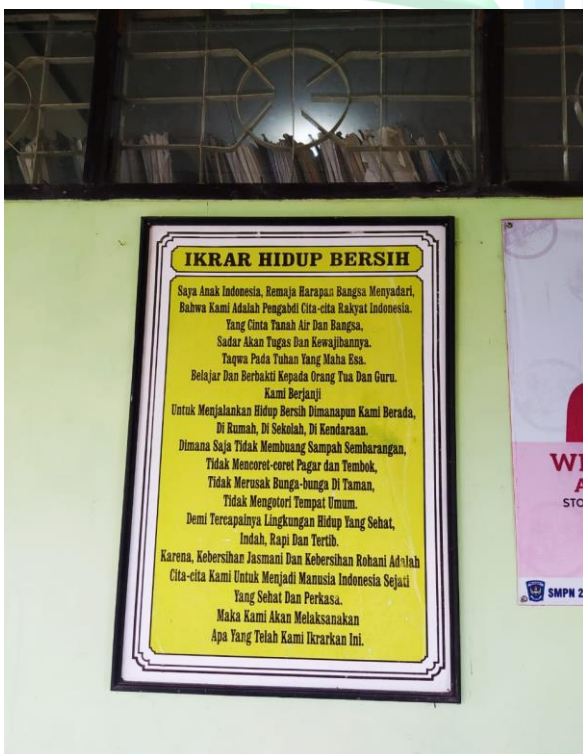 IKRAR HIDUP BERSIH
Saya Anak Indonesia, Remaja Harapan Bangsa Menyadari,
Bahwa Kami Adalah Pengabdi Cita-cita Rakyat Indonesia.
Yang Cinta Tanah Air Dan Bangsa,
Sadar Akan Tugas Dan Kewajibannya.
Taqwa Pada Tuhan Yang Maha Esa.
Belajar Dan Berbakti Kepada Orang Tua Dan Guru.
Kami Berjanji
Untuk Menjalankan Hidup Bersih Dimanapun Kami Berada,
Di Rumah, Di Sekolah, Di Kendaraan.
Dimana Saja Tidak Membuang Sampah Sembarangan,
Tidak Mencoret-coret Pagar dan Tembok,
Tidak Merusak Bunga-bunga Di Taman,
Tidak Mengotori Tempat Umum.
Demi Tercapainya Lingkungan Hidup Yang Sehat,
Indah, Rapi Dan Tertib.
Karena, Kebersihan Jasmani Dan Kebersihan Rohani Adalah
Cita-cita Kami Untuk Menjadi Manusia Indonesia Sejati
Yang Sehat Dan Perkasa.
Maka Kami Akan Melaksanakan
Apa Yang Telah Kami Ikrarkan Ini.
SMPN 2